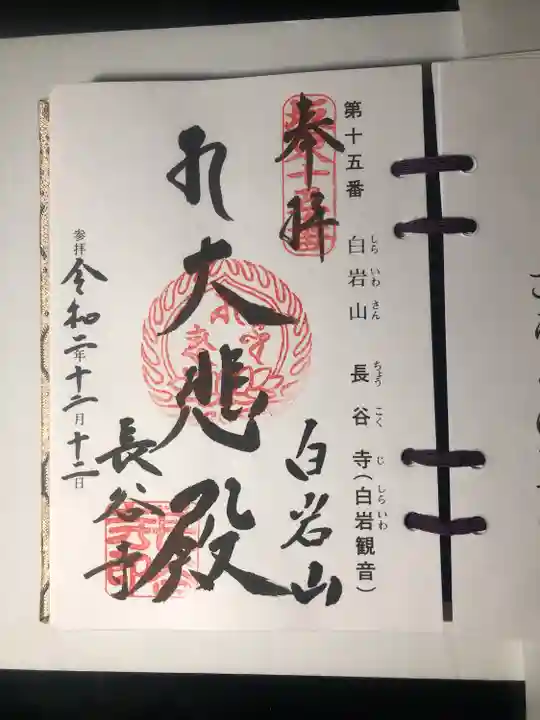 第十五番 白岩山 長谷寺(白岩観音)
しらいわさん ちょうこくじ しらいわ
奉拝
白岩山
大悲殿
長谷寺
参拝 令和二年十二月十二日